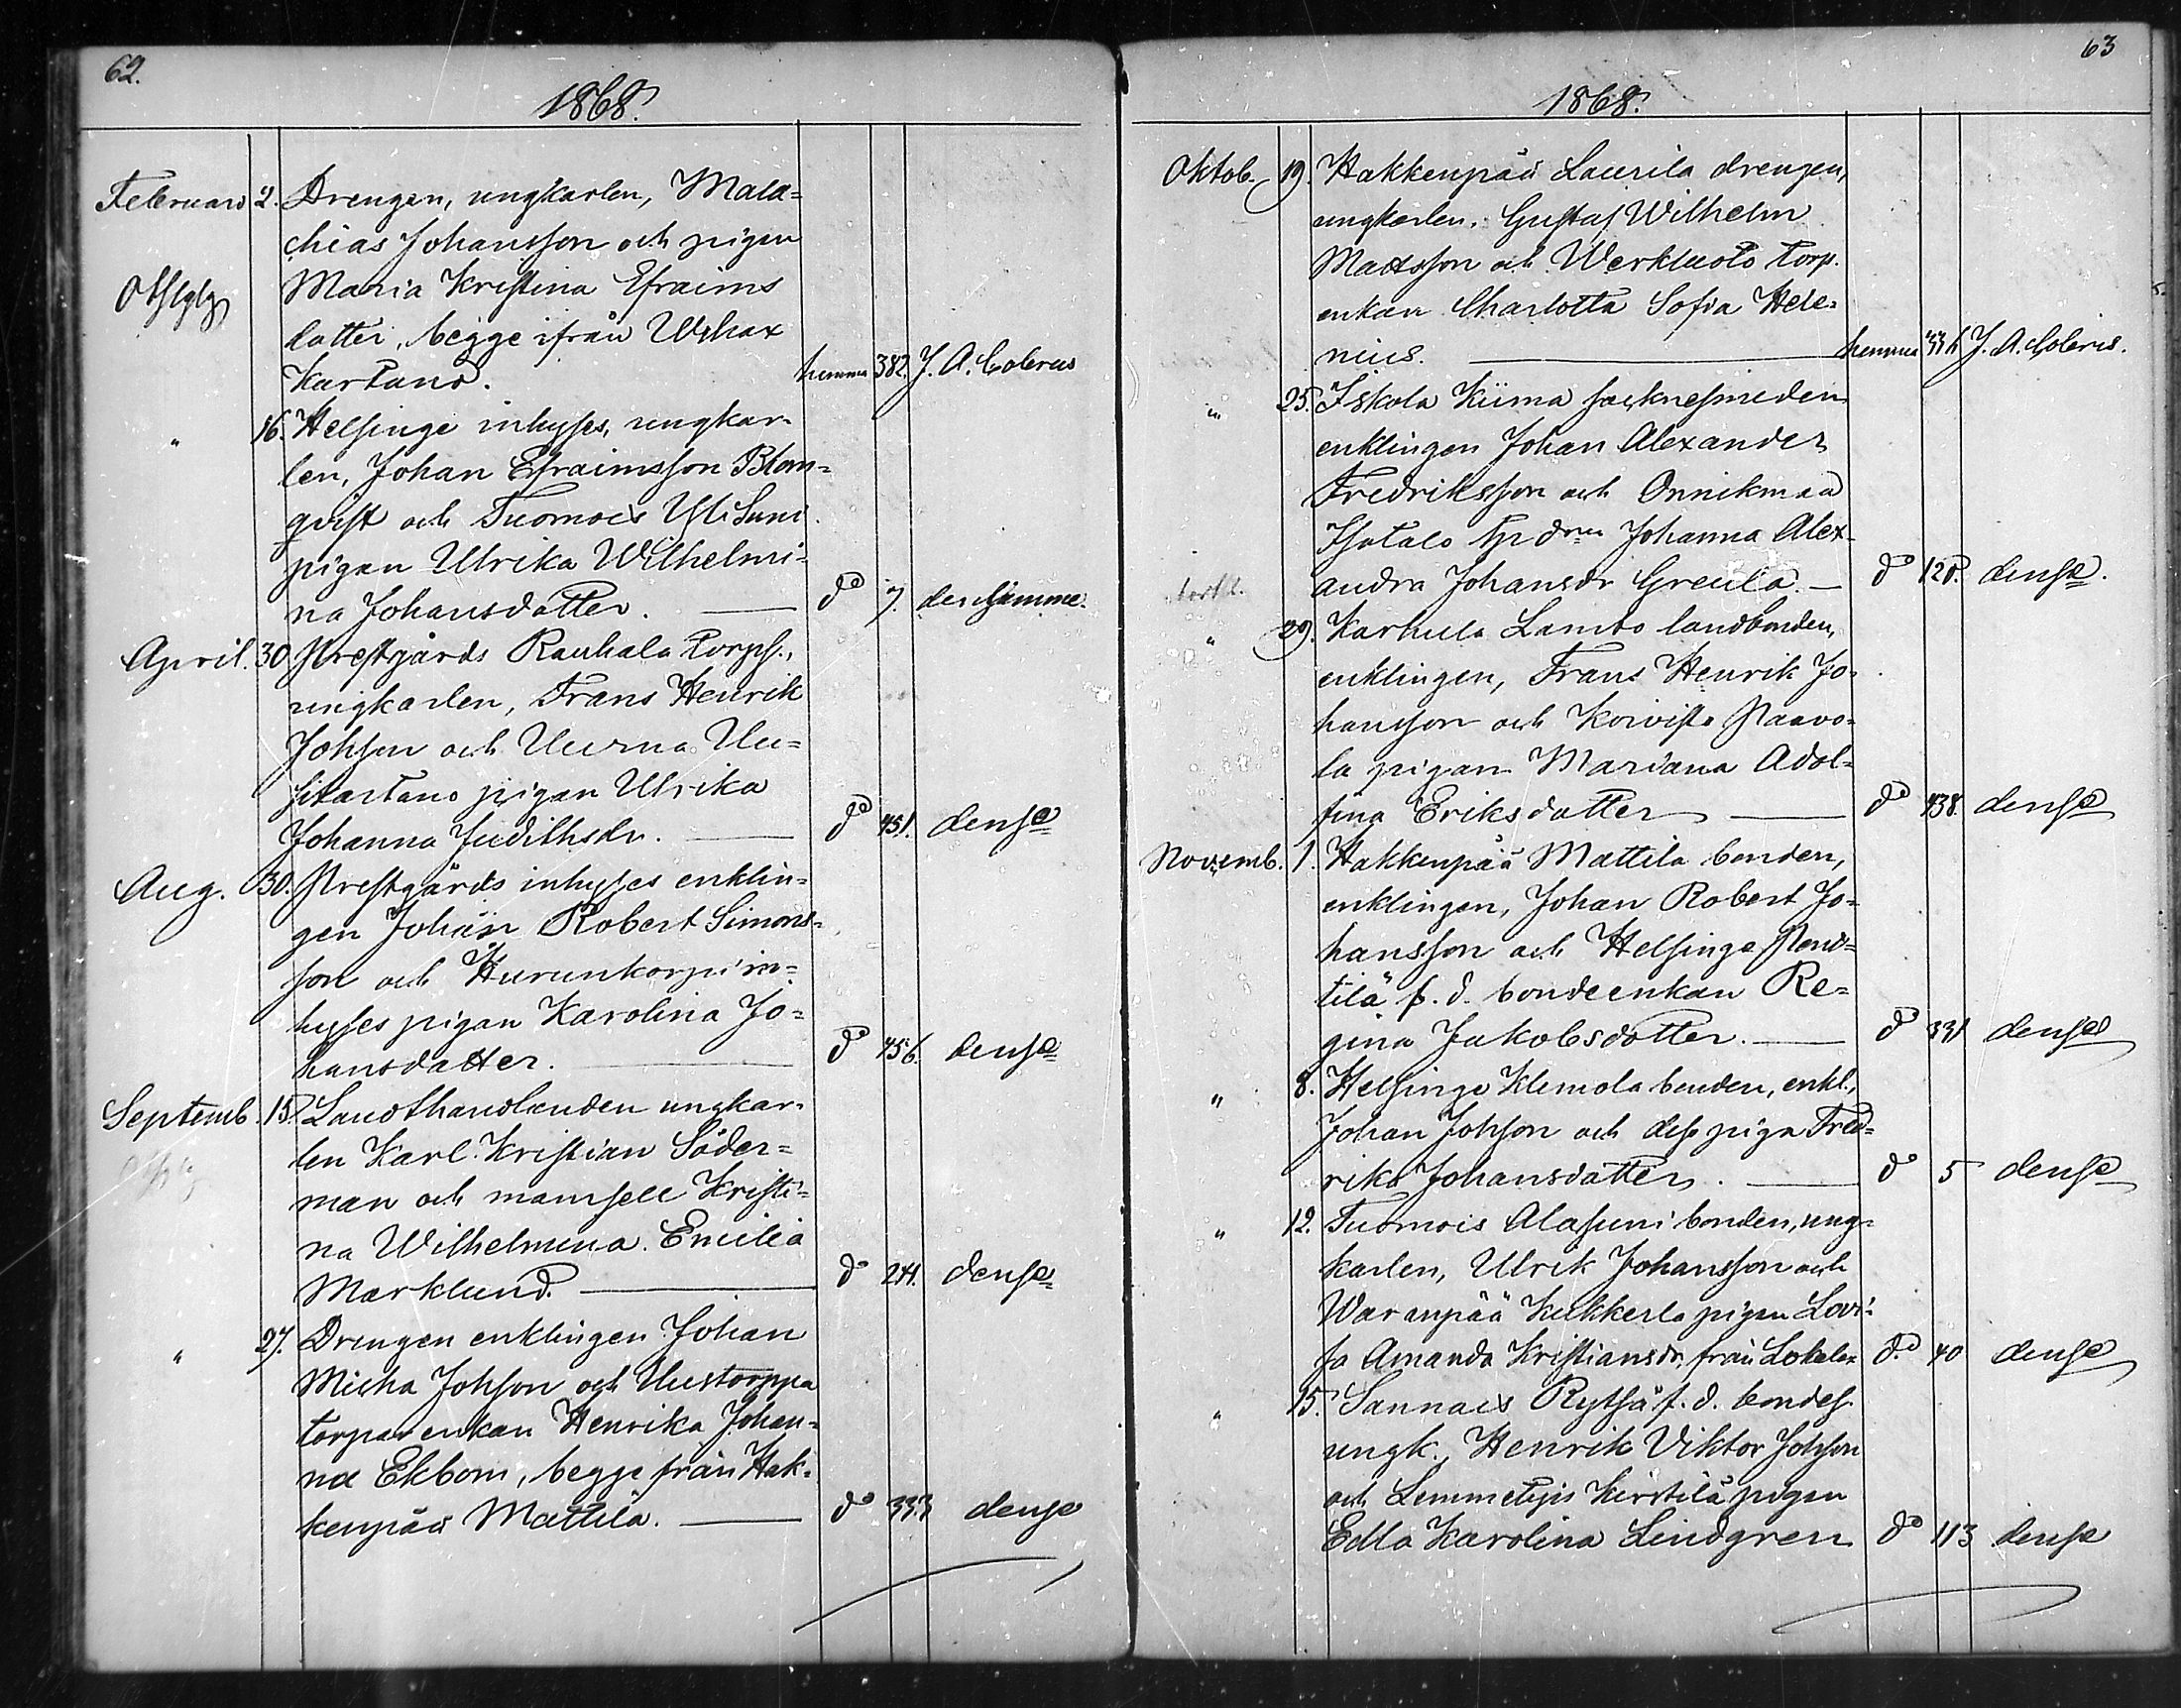 62.
1868.
Februari 2. Drengen, ungkarlen, Mala-
chias Johansson och pigan
Maria Kristina Efraims
dotter, begge ifrån Wehax
Kartano. hemma 382. J. A. Colerus
" 16. Helsinge inhyses, ungkar-
len, Johan Efraimsson Blom-
qvist och Tuomois Yli Suni
pigan Ulrika Wilhelmi-
na Johansdotter. — do 7. densamme.
April. 30 Prestgårds Rauhala torps.,
ungkarlen, Frans Henrik
Johsson och Uusna Uu-
sikartano pigan Ulrika
Johanna Judithsdr. — do 451. dense
Aug. 30. Prestgårds inhyses enklin-
gen Johan Robert Simons-
son och Hurunkorpi in-
hyses pigan Karolina Jo-
hansdotter. — do 456. dense
Septemb. 15. Landthandlanden ungkar-
len Karl Kristian Söder-
man och mamsell Kristi-
na Wilhelmina Emilia
Marklund. — do 241. dense
" 27. Drengen enklingen Johan
Micha Johsson och Uustorppa
torpar enkan Henrika Johan-
na Ekbom, begge från Hak-
kenpää Mattila. — do 333 dense
63
1868.
Oktob. 19. Hakkenpää Laurila drengen,
ungkarlen, Gustaf Wilhelm
Mattsson och Werkluoto torp.
enkan Charlotta Sofia Hele-
nius. — hemma J. A. Colerus.
" 25. Iskola Kiima socknesmeden
enklingen Johan Alexander
Fredriksson och Onnikmaa
Isotalo Johanna Alex-
andra Johansdr Greula. — do 128. dense.
" 29. Karhula Lambo landbonden,
enklingen, Frans Henrik Jo-
hansson och Koivisto Paavo-
la pigan Mariana Adol-
fina Eriksdotter — do 438. dense
Novemb. 1. Hakkenpää Mattila bonden,
enklingen, Johan Robert Jo-
hansson och Helsinge Pent-
tilä f. d. bondeenkan Re-
gina Jakobsdotter. — do 331 dense
" 8. Helsinge Klemola bonden, enkl.,
Johan Johsson och dess piga Fred-
rika Johansdotter. — do 5 dense
" 12. Tuomois Alasuni bonden, ung-
karlen, Ulrik Johansson och
Waranpää Kukkerla pigan Lovi-
sa Amanda Kristiansdr, från Lokalax do 40 dense
" 15. Sannais Rytsä f. d. bondes.
ungk., Henrik Viktor Johsson
och Lemmetyis Kirstilä pigan
Edla Karolina Lindgren do 113 dense